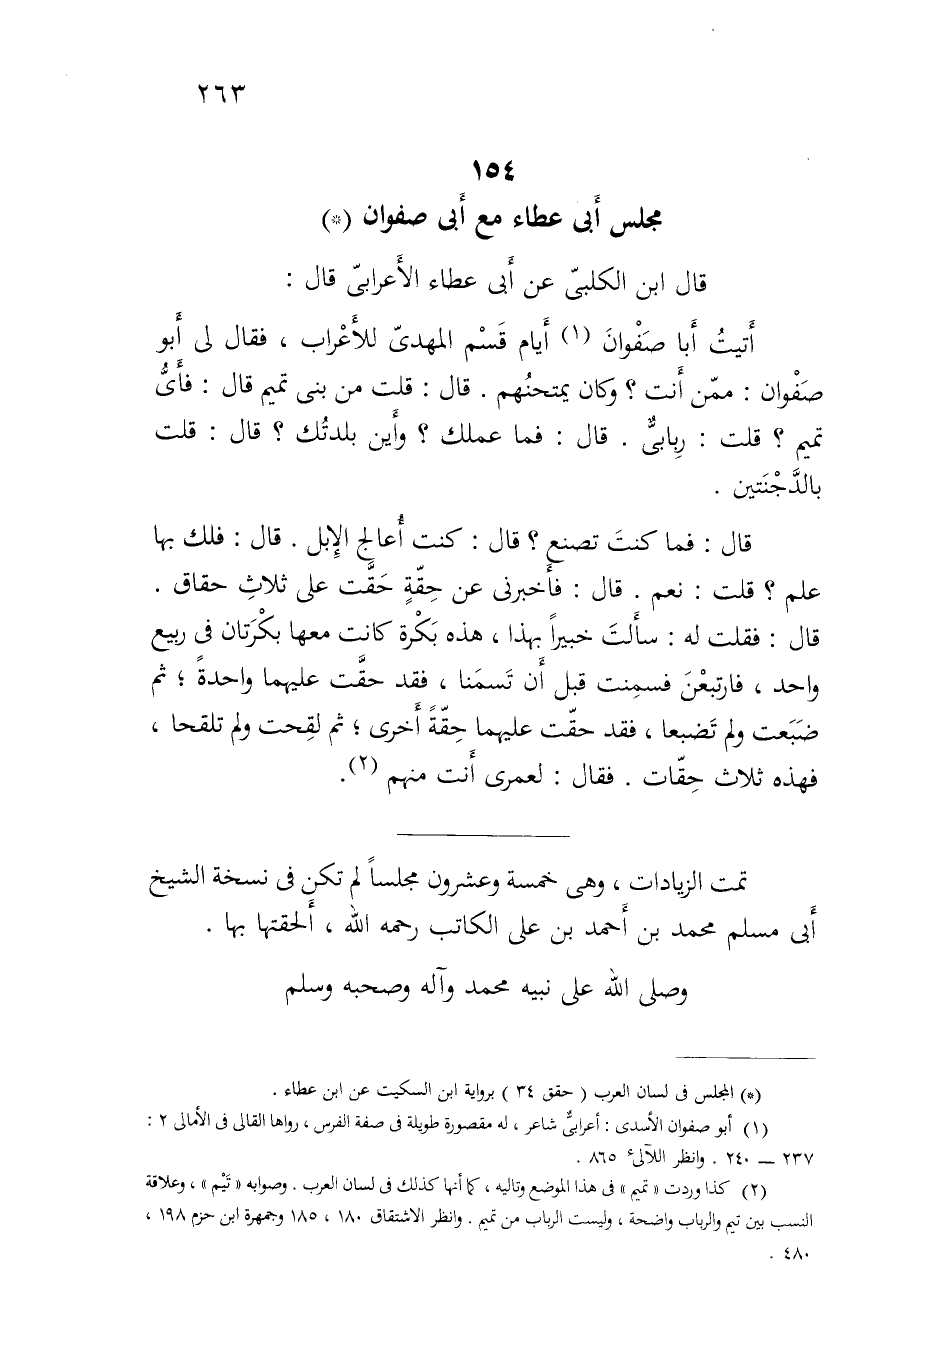 ٢٦٣
١٥٤
مجلس أبى عطاء مع أبى صفوان (*)
قال ابن الكلبىّ عن أبى عطاء الأعرابىّ قال :
أتيتُ أبا صَفْوانَ (١) أيام قَسْم المهدىّ للأَعْراب ، فقال لى أبو
صَفْوان : ممّن أنت ؟ وكان يمتحنُهم . قال : قلت من بنى تميم قال : فأىُّ
تميم ؟ قلت : رِبابىٌّ . قال : فما عملك ؟ وأين بلدتُك ؟ قال : قلت
بالدَّجْنَتين .
قال : فما كنتَ تصنع ؟ قال : كنت أُعالج الإبل . قال : فلك بها
علم ؟ قلت : نعم . قال : فأخبرنى عن حِقّةٍ حَقَّت على ثلاثِ حقاق .
قال : فقلت له : سألتَ خبيراً بهذا ، هذه بَكْرة كانت معها بكْرَتان فى ربيع
واحد ، فارتبعْنَ فسمِنت قبل أن تَسمَنا ، فقد حقَّت عليهما واحدةً ؛ ثم
ضبَعت ولم تَضبعا ، فقد حقّت عليهما حِقّةً أخرى ؛ ثم لقِحت ولم تلقحا ،
فهذه ثلاث حِقّات . فقال : لعمرى أنت منهم (٢).
تمت الزيادات ، وهى خمسة وعشرون مجلساً لم تكن فى نسخة الشيخ
أبى مسلم محمد بن أحمد بن على الكاتب رحمه الله ، ألحقتها بها .
وصلى الله على نبيه محمد وآله وصحبه وسلم
(*) المجلس فى لسان العرب ( حقق ٣٤ ) برواية ابن السكيت عن ابن عطاء .
(١) أبو صفوان الأسدى : أعرابىٌّ شاعر ، له مقصورة طويلة فى صفة الفرس ، رواها القالى فى الأمالى ٢ :
٢٣٧ — ٢٤٠ . وانظر اللآلئ ٨٦٥ .
(٢) كذا وردت « تميم » فى هذا الموضع وتاليه ، كما أنها كذلك فى لسان العرب . وصوابه « تَيْم » ، وعلاقة
النسب بين تيم والرباب واضحة ، وليست الرباب من تميم . وانظر الاشتقاق ١٨٠ ، ١٨٥ وجمهرة ابن حزم ١٩٨ ،
٤٨٠ .